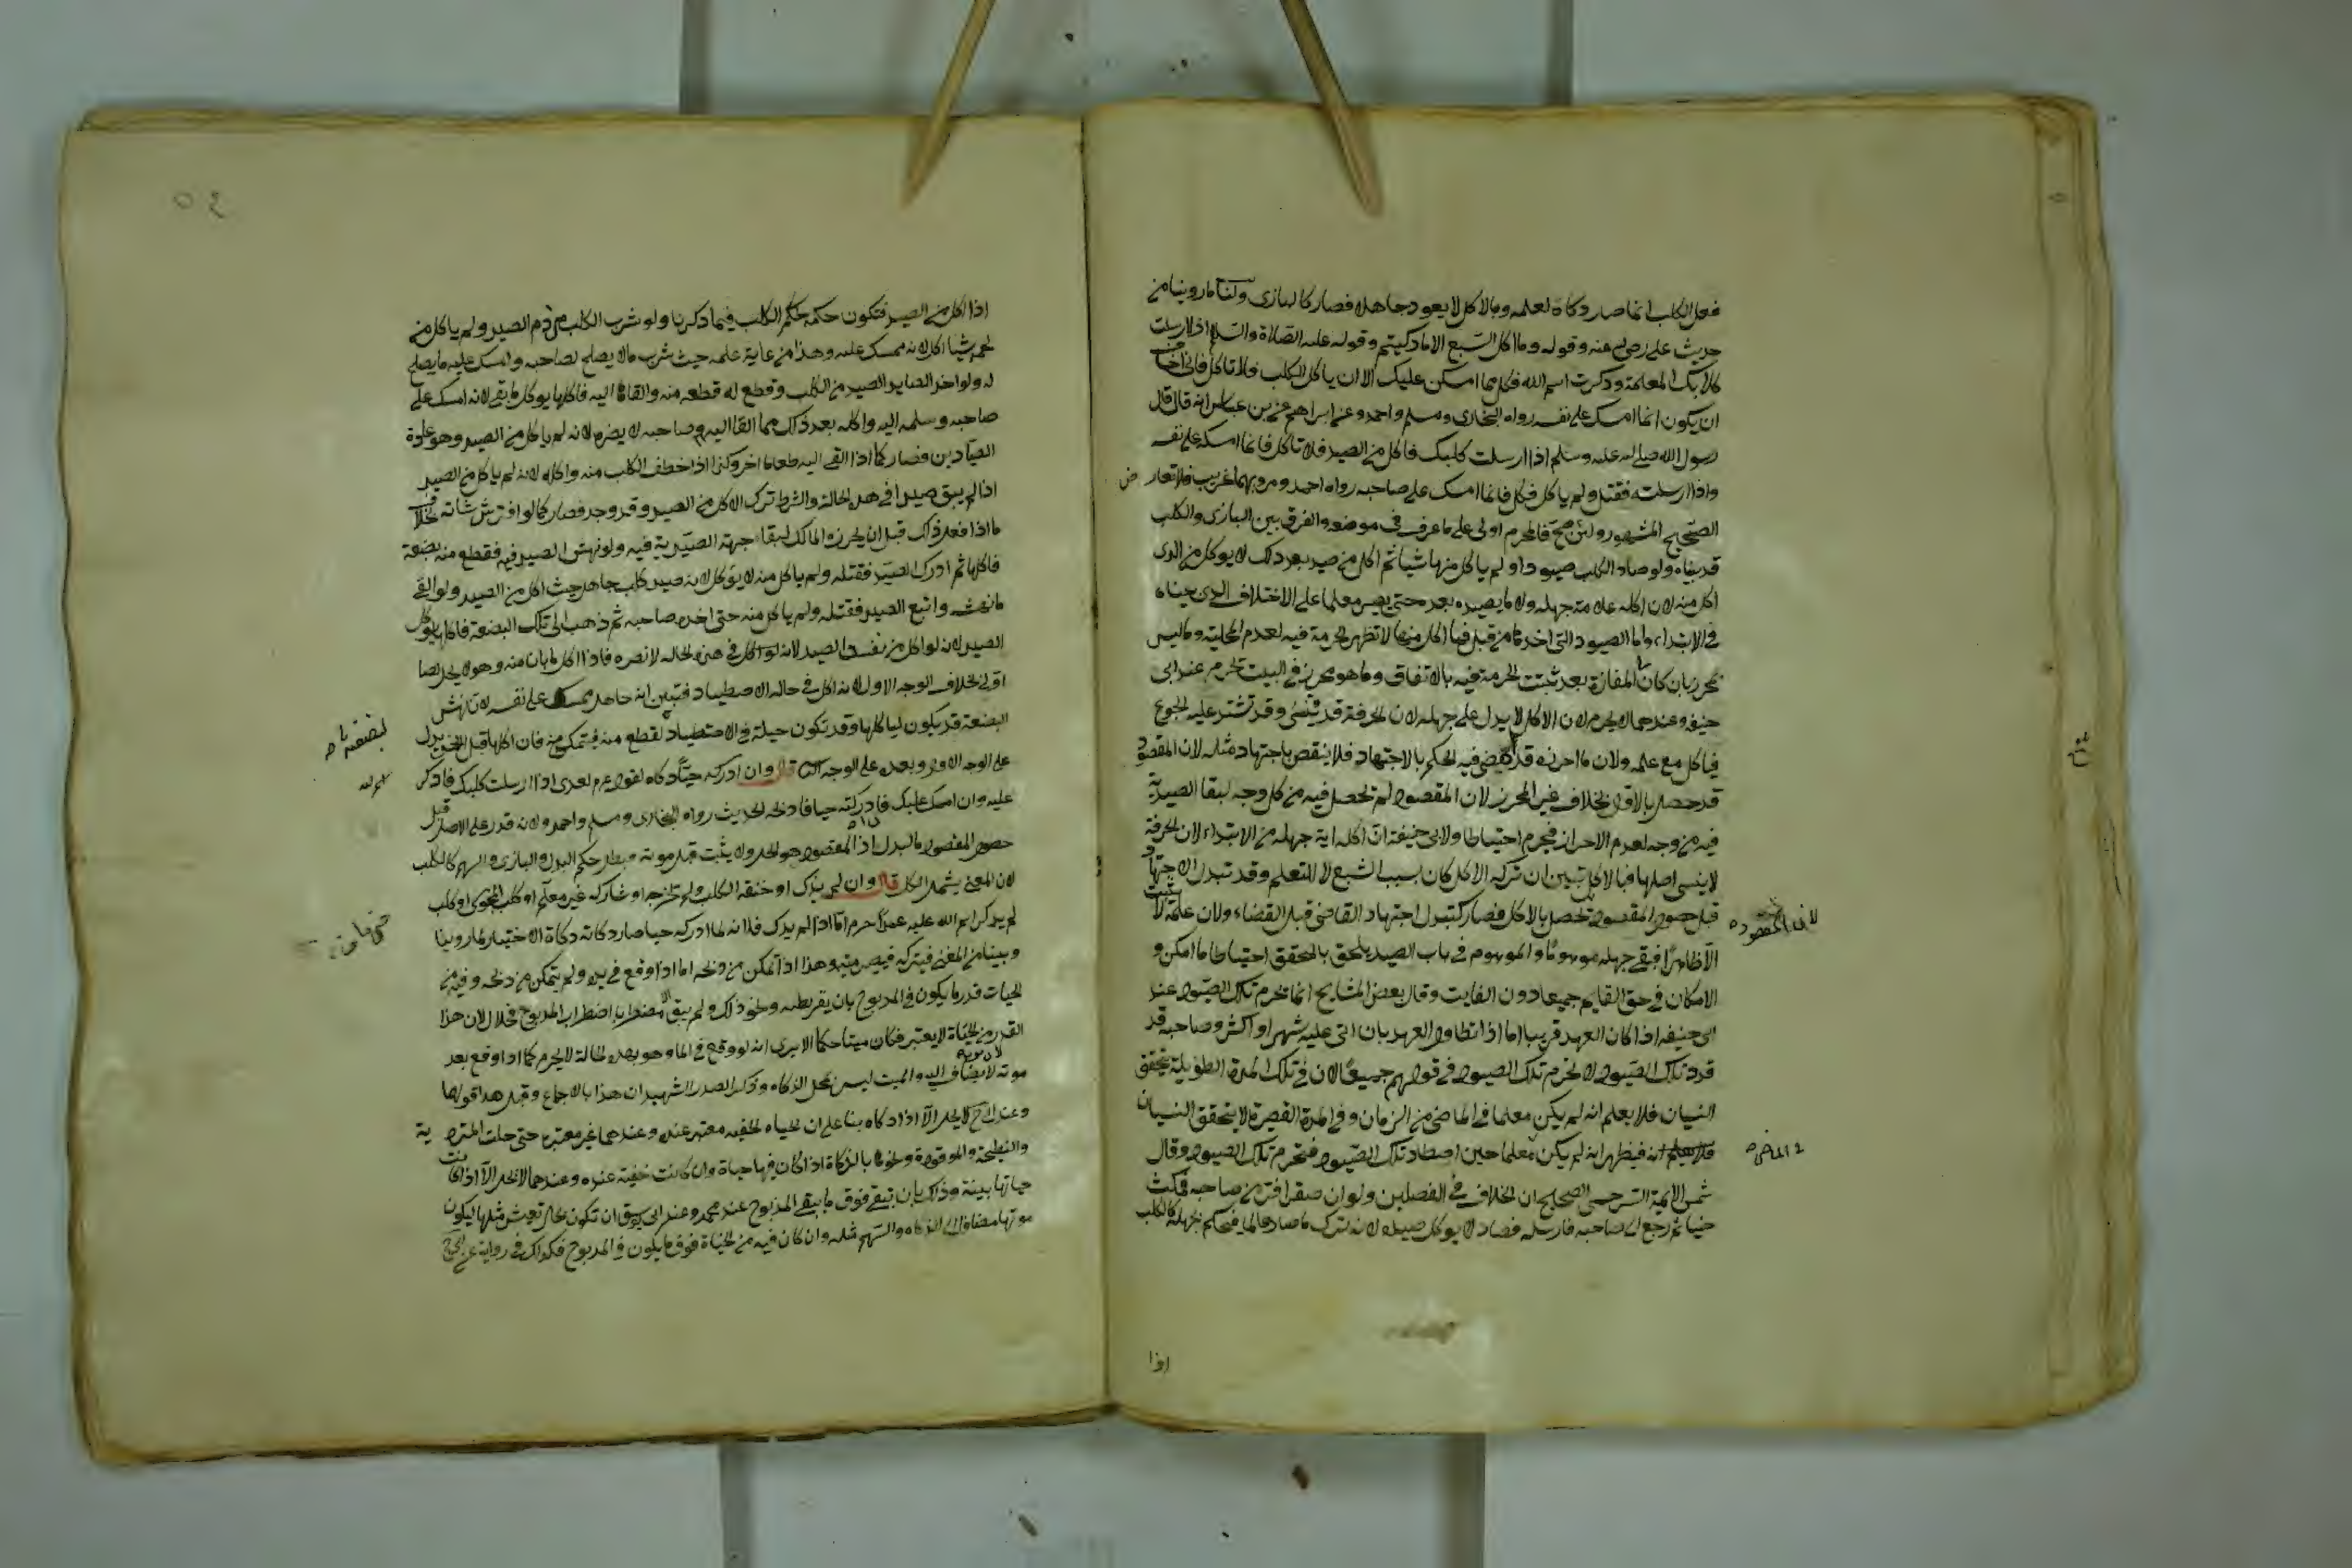 فعل الكلب انما صار دكاة لعلمه وبالاكل لا يعود جاهلا فصار كالبازى ولنا ما روينا من
حديث على رضى عنه وقوله وما اكل السبع الا ما دكيتم وقوله عليه الصلاة والسلام اذا ارسلت
كلابك المعلمة ودكرت اسم الله فكل مما امسكن عليك الا ان ياكل الكلب فلا تاكل فانى اخاف
ان يكون انما امسك على نفسه رواه البخارى ومسلم واحمد وعن ابراهيم عن بن عباس انه قال قال
رسول الله صلى الله عليه وسلم اذا ارسلت كلبك فاكل من الصيد فلا تاكل فانما امسكه على نفسه
واذا ارسلته فقتل ولم ياكل فكل فانما امسك على صاحبه رواه احمد ومرويهما غريب فلا تعارض
الصحيح المشهور ولئن صح فالمحرم اولى على ما عرف فى موضعه والفرق بين البازى والكلب
قد بيناه ولو صاد الكلب صيودا ولم ياكل منها شيا ثم اكل من صيد بعد ذلك لا يوكل من الدى
اكل منه لان اكله علامة جهله ولا ما يصيده بعده حتى يصير معلما على الاختلاف الدى بيناه
فى الابتداء واما الصيود التى اخدها من قبل فما اكل منها لا تظهر الحرمة فيه لعدم المحلية وما ليس
بمحرز بان كان فى المفازة بعد ثبتت الحرمة فيه بالاتفاق وما هو محرز فى البيت تحرم عند ابى
حنيفه وعندهما لا يحرم لان الاكل لا يدل على جهله لان الحرفة قد تنسى وقد تشتد عليه الجوع
فياكل مع علمه ولان ما احرزه قد امضى فيه الحكم بالاجتهاد فلا ينقض باجتهاد مثله لان المقصود
قد حصل بالاول بخلاف غير المحرز لان المقصود لم تحصل فيه من كل وجه لبقا الصيدية
فيه من وجه لعدم الاحراز فيحرم احتياطا ولابى حنيفة ان اكله اية جهله من الابتداء لان الحرفة
لا ينسى اصلها فبالاكل تبين ان تركه الاكل كان بسبب الشبع لا للتعلم وقد تبدل الاجتهاد
قبل حصول المقصود تحصل بالاكل فصار كتبدل اجتهاد القاضى قبل القضاء ولان علمه لا يثبت
لان المقصود
الا ظاهرا فبقى جهله موهوما والموهوم فى باب الصيد يلحق بالمتحقق احتياطا ما امكن و
الامكان فى حق القايم جميعا دون الفايت وقال بعض المشايخ انما تحرم تلك الصيود عند
ابى حنيفه اذا كان العهد قريبا اما اذا تطاول العهد بان اتى عليه شهرا او اكثر وصاحبه قد
قدد تلك الصيود لا تحرم تلك الصيود فى قولهم جميعا لان فى تلك المدة الطويلة يتحقق
النسيان فلا يعلم انه لم يكن معلما فى الماضى من الزمان وفى المدة القصيرة لا يتحقق النسيان
فيظهر انه لم يكن معلما حين اصطاد تلك الصيود فتحرم تلك الصيود وقال
شمس الائمة السرخسى الصحيح ان الخلاف فى الفصلين ولو ان صقرا فر من صاحبه فمكث
حينا ثم رجع الى صاحبه فارسله فصاد لا يوكل صيده لانه ترك ما صار به عالما فيحكم بجهله كالكلب
اذا
٥٤
اذا اكل من الصيد فتكون حكمه حكم الكلب فيما دكرنا ولو شرب الكلب من دم الصيد ولم ياكل من
لحمه شيا اكل لانه ممسك عليه وهذا من غاية علمه حيث شرب ما لا يصلح لصاحبه وامسك عليه ما يصلح
له ولو اخد الصايد الصيد من الكلب وقطع له قطعه منه والقاها اليه فاكلها يوكل ما بقى لانه امسك على
صاحبه وسلمه اليه واكله بعد ذلك مما القا اليه صاحبه لا يضره لانه لم ياكل من الصيد وهو عادة
الصيادين فصار كما اذا القى اليه طعاما اخر وكذا اذا خطف الكلب منه واكله لانه لم ياكل من الصيد
اذا لم يبق صيدا فى هذه الحالة والشرط ترك الاكل من الصيد وقد وجد فصار كما لو افترش شاته بخلاف
ما اذا فعل ذلك قبل ان يحرزه المالك لبقاء جهة الصيدية فيه ولو نهش الصيد فقطع منه بضعة
فاكلها ثم ادرك الصيد فقتله ولم ياكل منه لا يوكل لانه صيد كلب جاهل حيث اكل من الصيد ولو القى
ما نهشه واتبع الصيد فقتله ولم ياكل منه حتى اخده صاحبه ثم ذهب الى تلك البضعة فاكلها يوكل
الصيد لانه لو اكل من نفس الصيد لانه لو اكل فى هذه الحاله لا تضره فاذا اكل ما بان منه وهو لا يحل لصا
اولى بخلاف الوجه الاول لانه اكل فى حالة الاصطياد فتبين انه جاهل ممسك على نفسه لان نهش
البضعة قد يكون لياكلها وقد تكون حيلة فى الاصطياد لقطع منه فيتمكن منه فان اكلها قبل الاخد يدل
على الوجه الاول وبعده على الوجه الثانى قال وان ادركه حيا دكاه لقوله عم لعدى اذا ارسلت كلبك فادكر
عليه وان امسك عليك فادركته حيا فادبحه الحديث رواه البخارى ومسلم واحمد ولانه قدر على الاصل قبل
حصول المقصود بالبدل اذ المقصود هو الحل ولا يثبت قبل موته فبطل حكم البدل والبازى والسهم كالكلب
لان المعنى يشمل الكل قال وان لم يذك او خنقه الكلب ولم تخرجه او شاركه غير معلم او كلب مجوسى او كلب
لم يدكر اسم الله عليه عمدا حرم اما اذا لم يدك فلانه لما ادركه حيا صار دكاته دكاة الاختيار لما روينا
وبينا من المعنى فبتركه فيصير ميتة وهذا اذا تمكن من ذبحه اما اذا وقع فى يده ولم يتمكن من ذبحه وفيه من
الحيات قدر ما يكون فى المدبوح بان يقر بطنه ونحو ذلك ولم يبق الا مضطربا اضطراب المدبوح فحلال لان هذا
القدر من الحياة لا يعتبر فكان ميتا حكما الا يرى انه لو وقع فى الماء وهو بهذه الحالة لا يحرم كما اذا وقع بعد
موته لان موته لا يضاف اليه والميت ليس بمحل الذكاه وذكر الصدر الشهيد ان هذا بالاجماع وقيل هذا قولهما
وعند ابى ح لا يحل الا اذا دكاه بنا على ان الحياه الخفيه معتبرة عنده وعندهما غير معتبره حتى حلت المتردية
والنطيحة والموقوذة ونحوها بالذكاة اذا كان فيها حياة وان كانت خفية عنده وعندهما لا تحل الا اذا كانت
حياتها بينة وذلك بان تبقى فوق ما يبقى المذبوح عند محمد وعند ابى يوسف ان تكون بحال يعيش مثلها ليكون
موتها مضافا الى الذكاه والسهم مثله وان كان فيه من الحياة فوق ما يكون فى المدبوح فكذلك فى رواية عن ابى ح